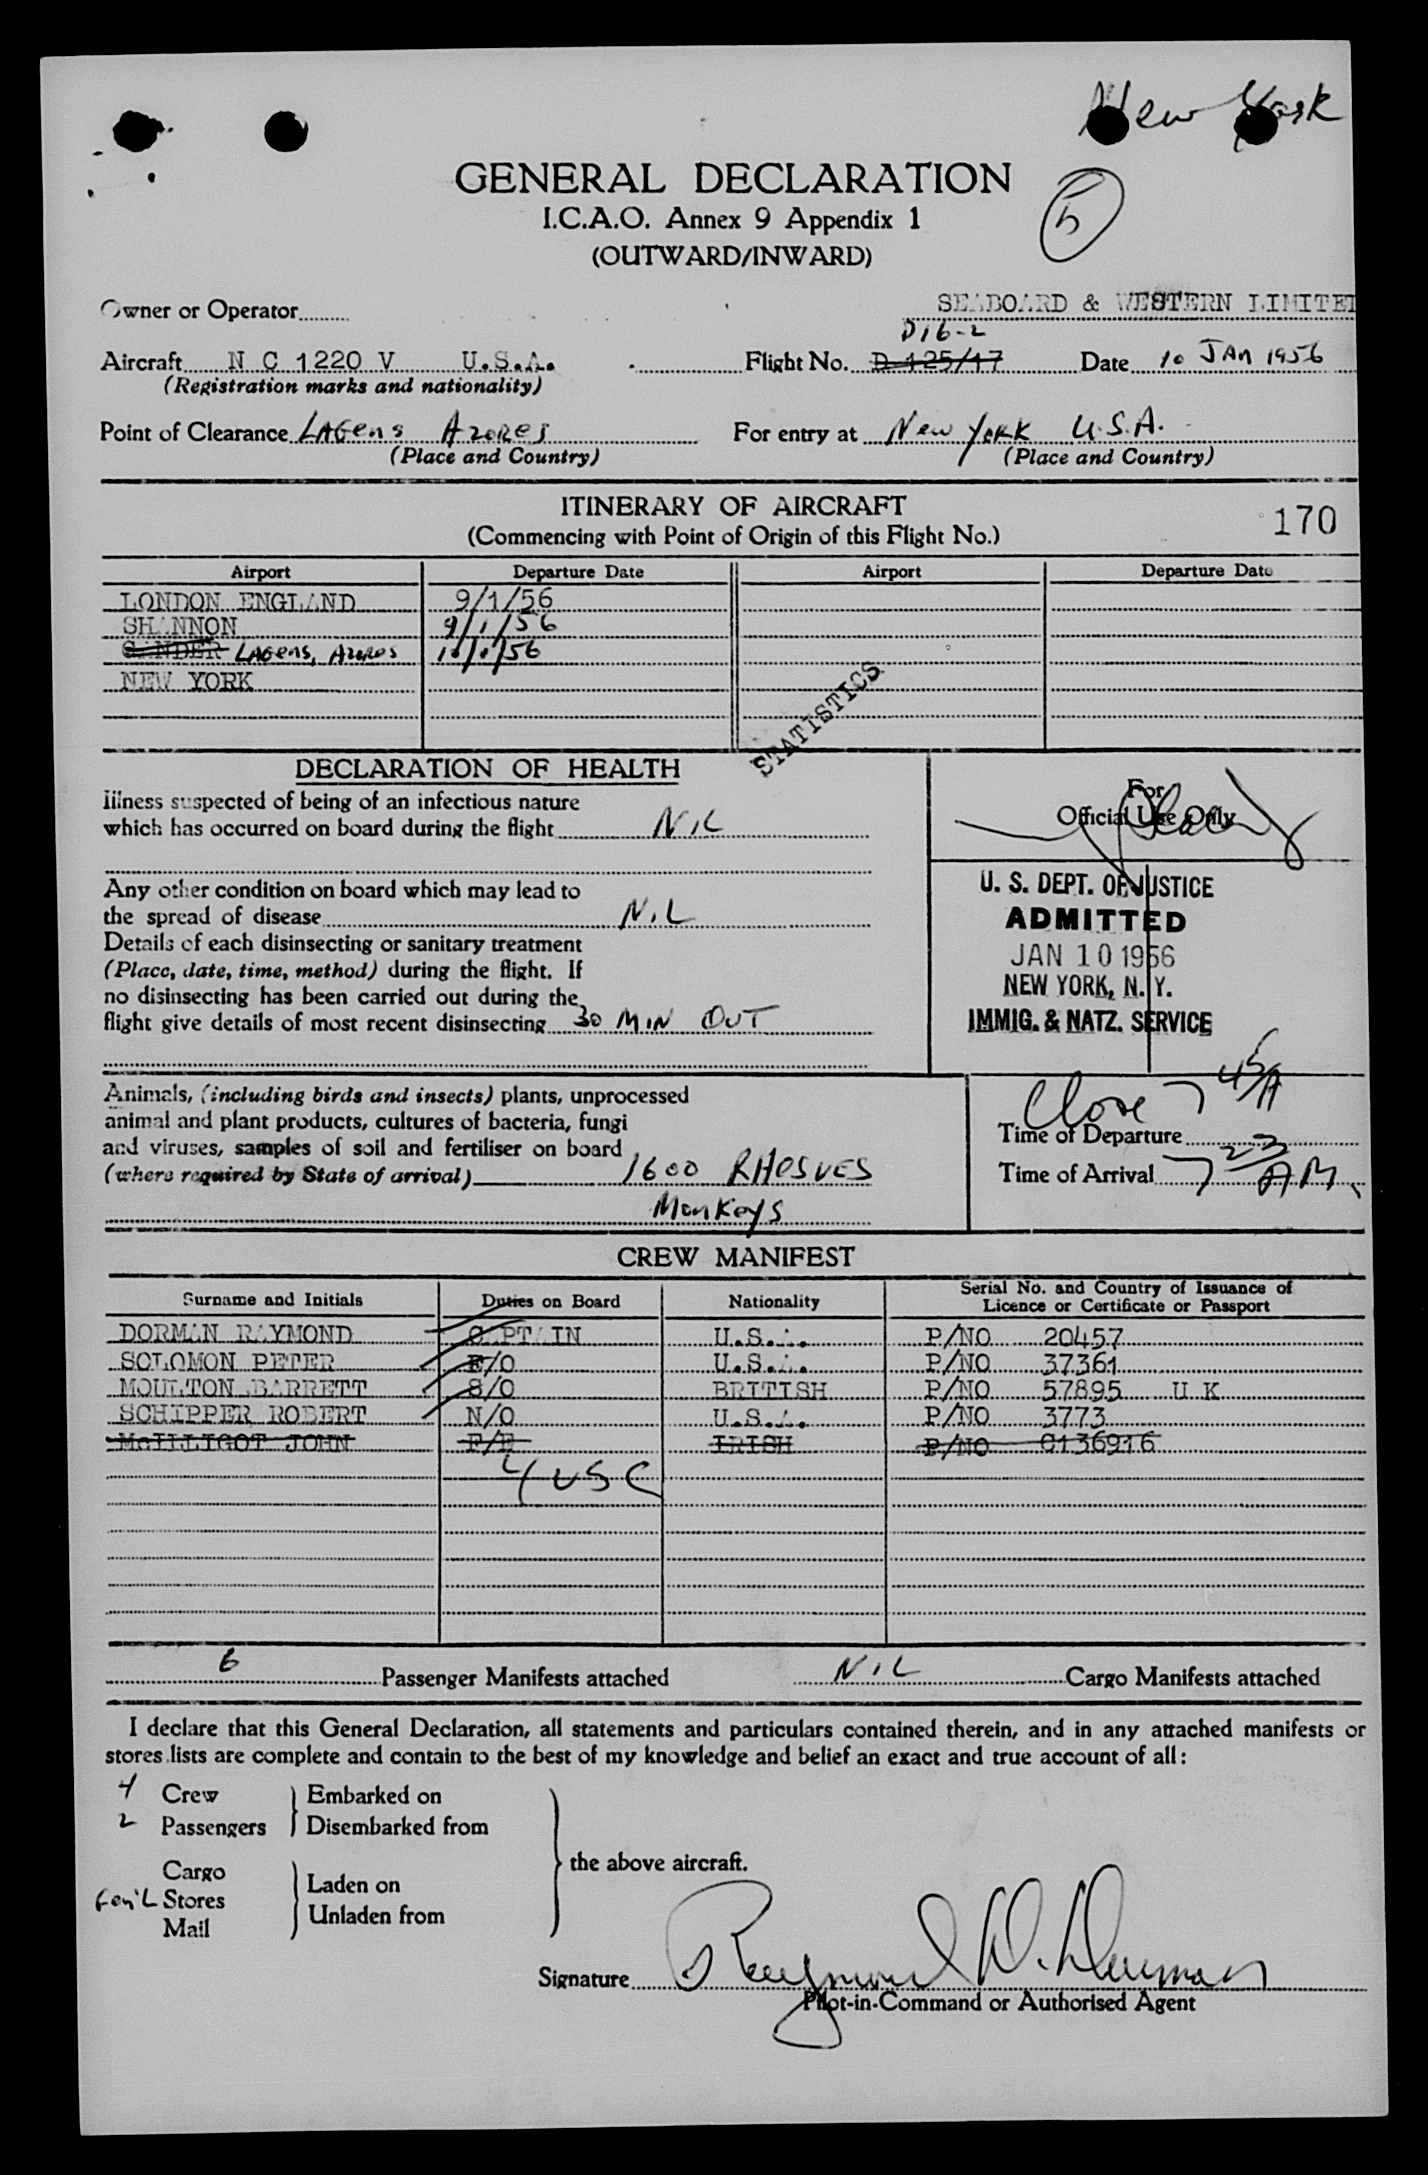 New York
GENERAL DECLARATION
I.C.A.O. Annex 9 Appendix 1
(OUTWARD/INWARD)
5
Owner or Operator SEABOARD & WESTERN LIMITED
D16-2
Aircraft N C 1220 V U.S.A. Flight No. D 125/17 Date 10 JAN 1956
(Registration marks and nationality)
Point of Clearance LAGens Azores For entry at New York U.S.A.
(Place and Country) (Place and Country)
ITINERARY OF AIRCRAFT
(Commencing with Point of Origin of this Flight No.)
170
Airport Departure Date Airport Departure Date
LONDON ENGLAND 9/1/56
SHANNON 9/1/56
GANDER LAGens, Azores 10/1/56
NEW YORK
STATISTICS
DECLARATION OF HEALTH
Illness suspected of being of an infectious nature
which has occurred on board during the flight NIL
Any other condition on board which may lead to
the spread of disease NIL
Details of each disinsecting or sanitary treatment
(Place, date, time, method) during the flight. If
no disinsecting has been carried out during the
flight give details of most recent disinsecting 30 MIN OUT
For
Official Use Only
U. S. DEPT. OF JUSTICE
ADMITTED
JAN 10 1956
NEW YORK, N. Y.
IMMIG. & NATZ. SERVICE
Animals, (including birds and insects) plants, unprocessed
animal and plant products, cultures of bacteria, fungi
and viruses, samples of soil and fertiliser on board
(where required by State of arrival) 1600 RHESUES
Monkeys
Close 7 45/A
Time of Departure
Time of Arrival 7 23 AM
CREW MANIFEST
Surname and Initials Duties on Board Nationality Serial No. and Country of Issuance of
Licence or Certificate or Passport
DORMAN RAYMOND CAPTAIN U.S.A. P/NO 20457
SOLOMON PETER F/O U.S.A. P/NO 37361
MOULTON BARRETT S/O BRITISH P/NO 57895 U K
SCHIPPER ROBERT N/O U.S.A. P/NO 3773
McILLIGOT JOHN F/E IRISH P/NO C136916
4 USC
6 Passenger Manifests attached NIL Cargo Manifests attached
I declare that this General Declaration, all statements and particulars contained therein, and in any attached manifests or
stores lists are complete and contain to the best of my knowledge and belief an exact and true account of all:
4 Crew Embarked on
2 Passengers Disembarked from
the above aircraft.
Cargo Laden on
Gen'L Stores
Mail Unladen from
Signature Raymond W. Dorman
Pilot-in-Command or Authorised Agent